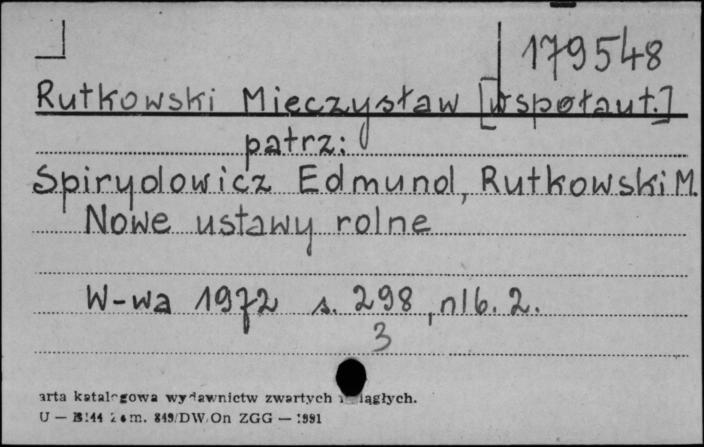 179548
Rutkowski Mieczysław [współaut.]
patrz:
Spirydowicz Edmund, Rutkowski M.
Nowe ustawy rolne
W-wa 1972 s. 298, nlb. 2.
3
arta katalogowa wydawnictw zwartych ciągłych.
U — zam. 849/DW/On ZGG — 1991